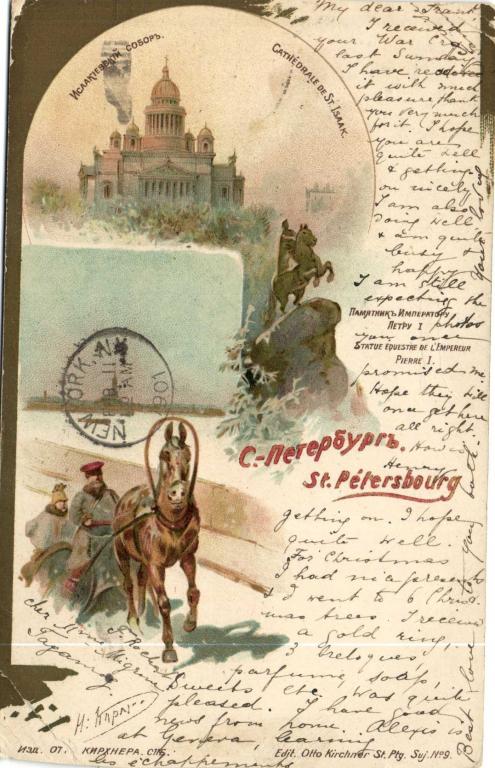 My dear Frank
I received
your War Cry
last Sunday
I have
it with much
pleasure thank
you very much
for it. I hope
you are
quite well
& getting
on nicely
I am also
doing well
& am quite
busy &
happy
I am still
expecting the
photos
you once
promised me.
Hope they will
once get here
all right
How is
Henry
getting on. I hope
quite well.
For Christmas
I had nice presents
& went to 6 Christ
mas trees. I receive
a gold ring,
3 breloques,
perfume, soap,
Sweets etc. Was quite
pleased. I have good
news from home. Alexis is
at Geneva, learning
les échappements
Best love to you both.
Your loving
ИСААКІЕВСКІЙ СОБОРЪ.
CATHÉDRALE DE ST. ISAAK.
ПАМЯТНИКЪ ИМПЕРАТОРУ
ПЕТРУ I
STATUE EQUESTRE DE L'EMPEREUR
PIERRE I.
NEW YORK, N.Y.
С.-Петербургъ.
St. Pétersbourg
chez
ИЗД. ОТ. КИРХНЕРА. СПБ.
Edit. Otto Kirchner St. Ptg. Suj. №9.